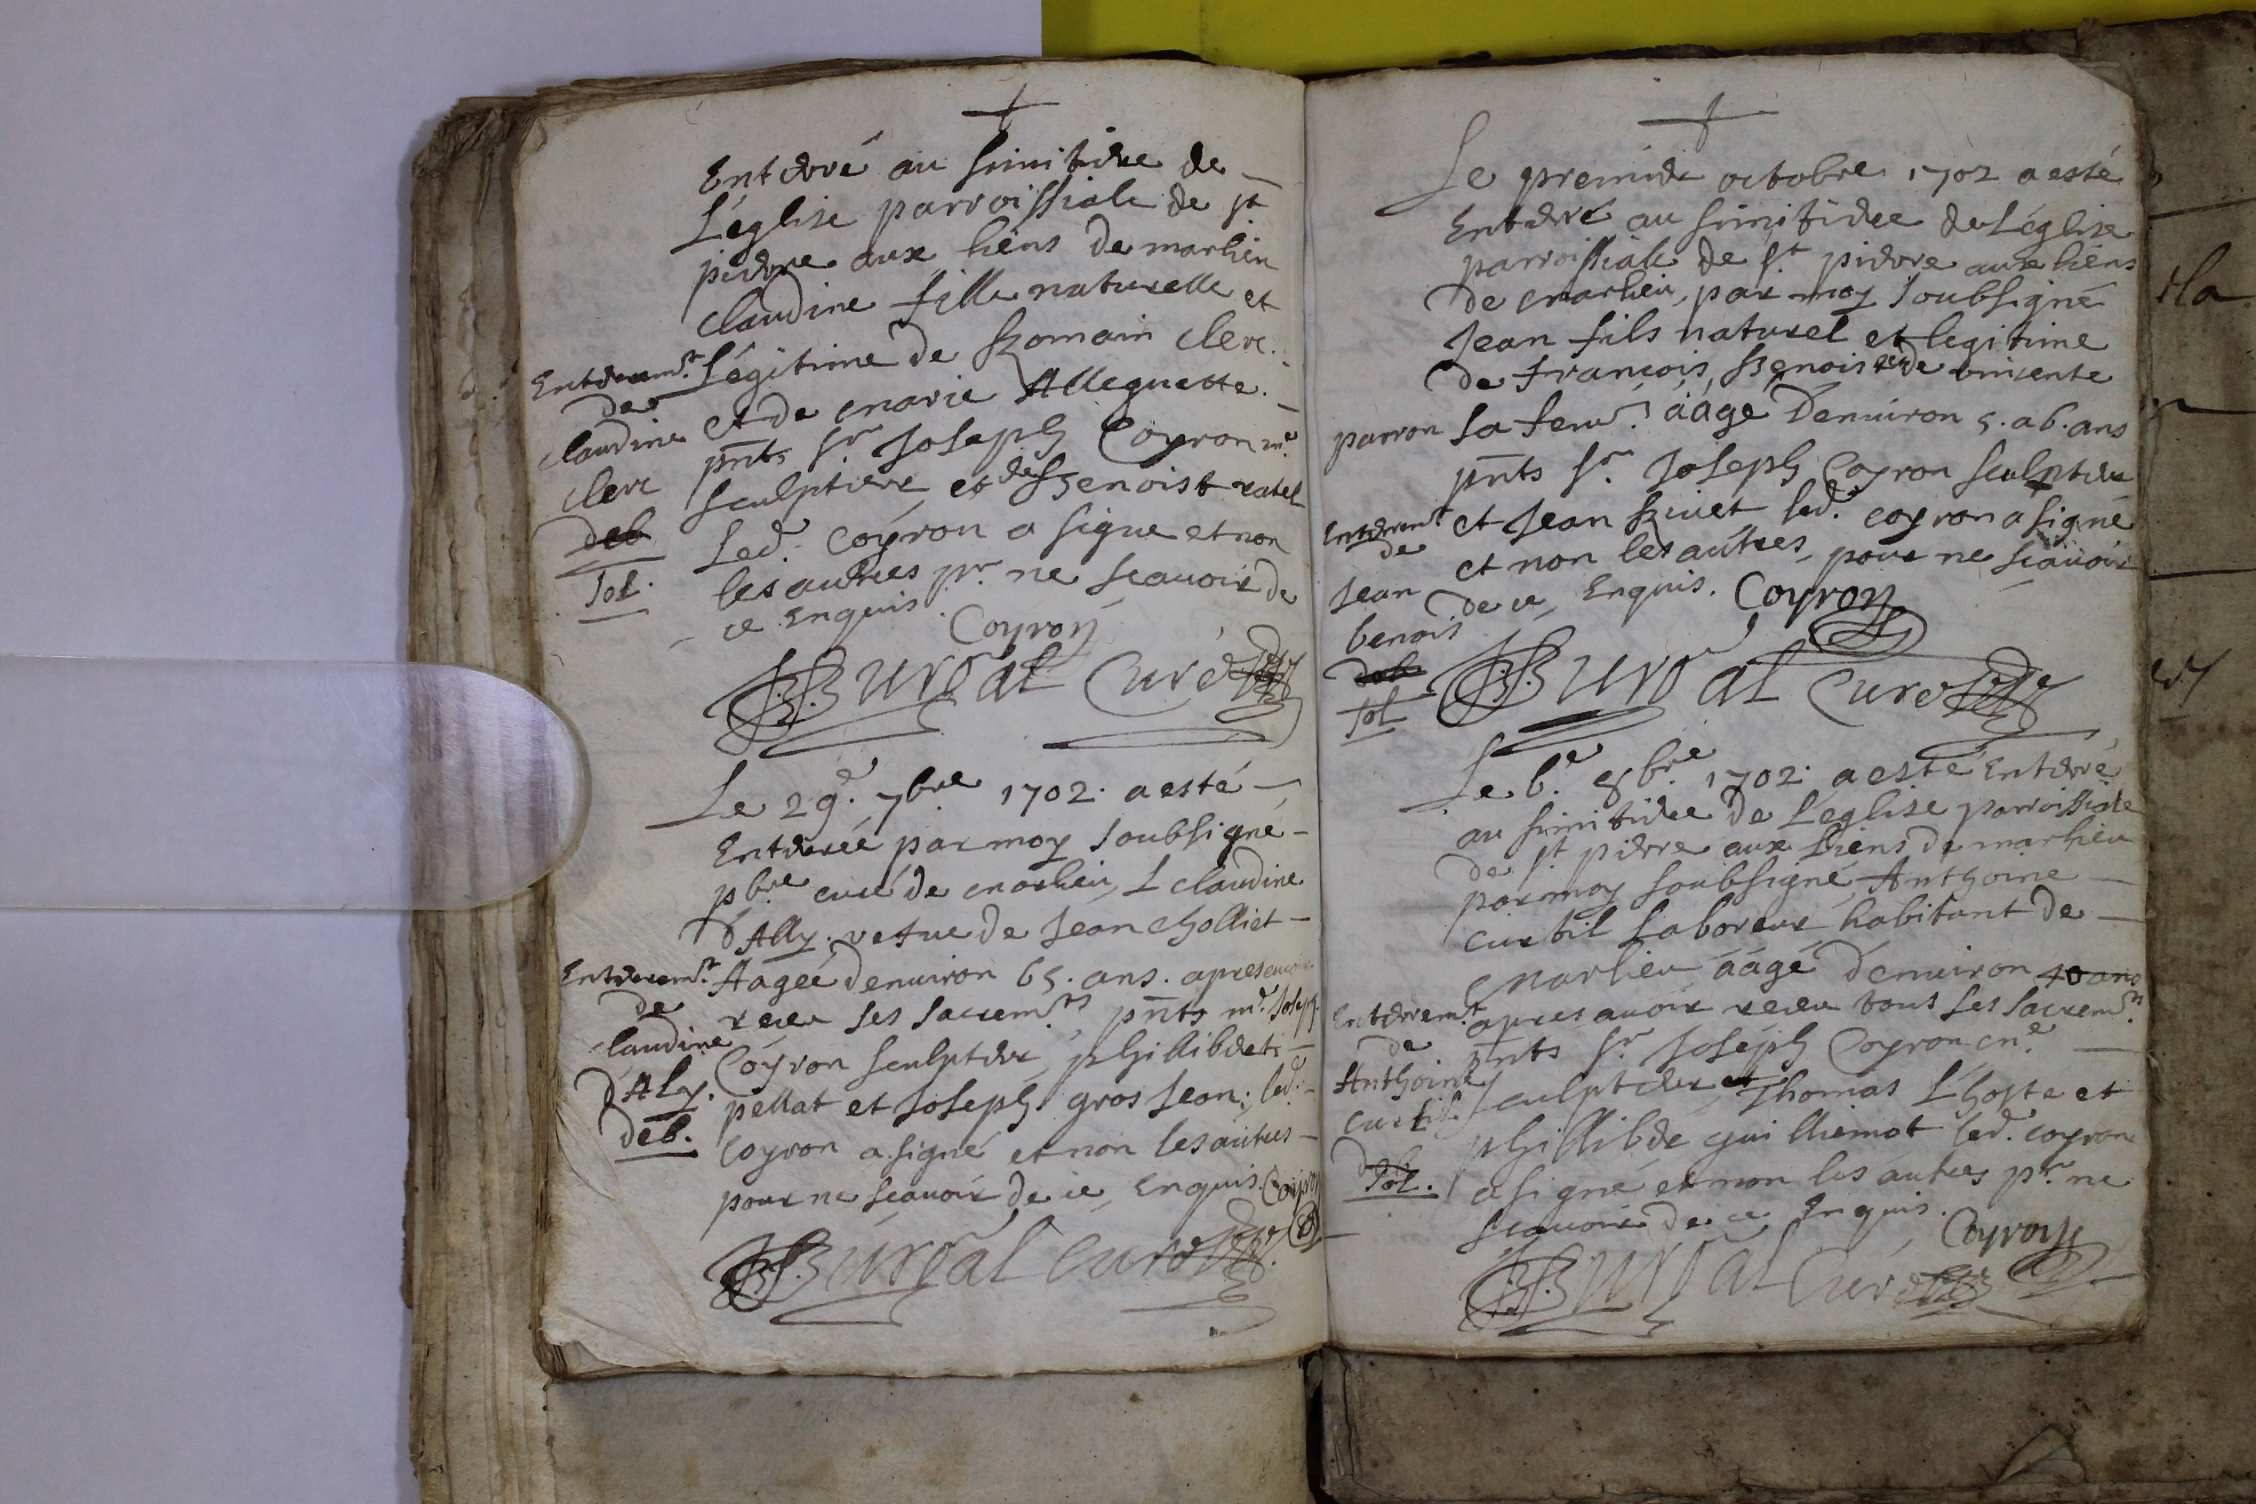 Enterré au simitiere de
L'église parroissiale de st
pierre aux liens de marlieu
claudine fille naturelle et
Légitime de Romain clerc.
et de marie Alleguette.
pnts sr Joseph Coyron me
sculpteur et de Benoist ratel
Led. Coyron a signe et non
les autres pr ne scauoir de
ce Enquis. Coyron
Burgal Curé
Enterremt
de
claudine
clerc
deb
sol.
Le 29e. 7bre 1702. a esté
Enterrée par moy soubsigné
pbre curé de marlieu, claudine
d'Ally. vefue de Jean cholliet
Aageé denuiron 65. ans. apres auoir
receu ses sacremts pnts me Joseph
Coyron sculpteur, phillibert
pellat et Joseph grosjean; led.
Coyron a signé et non les autres
pour ne scauoir de ce, Enquis. Coyron
Burgal Curé
Enterremt
de
claudine
d'Aly.
deb.
Le premier octobre 1702 a esté
Enterré au simitiere de L'église
parroissiale de st pierre aux liens
de marlieu, par moy soubsigné
Jean fils naturel et legitime
de francois Benois et de vinsente
parron sa fem. aagé D'enuiron 5. a 6. ans
pnts sr. Joseph Coyron sculpteur
et Jean Riuet led. coyron a signé
et non les autres, pour ne scauoir
de ce, Enquis. Coyron
Burgal Curé
Enterremt
de
Jean
benois
deb
sol
Le 6e 8bre 1702. a esté Enterré
au simitiere de L'eglise parroissiale
de st pierre aux Liens de marlieu
par moy soubsigné Anthoine
curtil Laboreur habitant de
Marlieu aagé D'enuiron 40 ans
apres auoir receu tous ses sacremts
pnts sr Joseph Coyron me
sculpteur et Thomas L'hoste et
phillibe guilliemot led. coyron
a signé et non les autres pr. ne
scauoir de ce Enquis. Coyron
Burgal Curé
Enterremt
de
Anthoine
curtil
deb
sol.